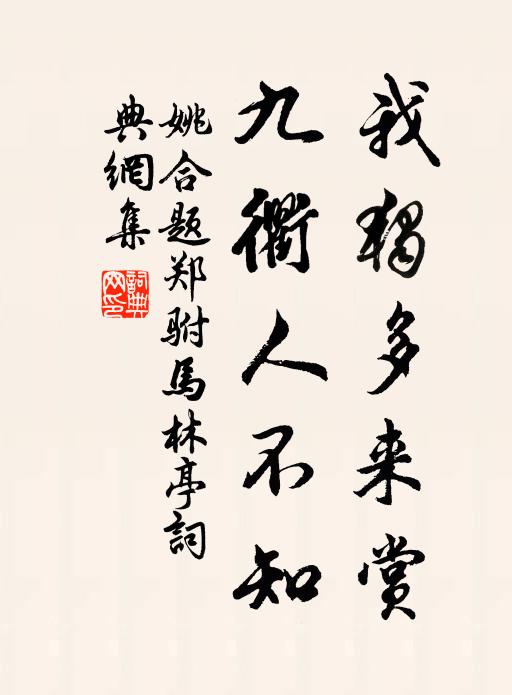 我独多来赏
九衢人不知
姚合题郑驸馬林亭詞
典網集
詞典
网印